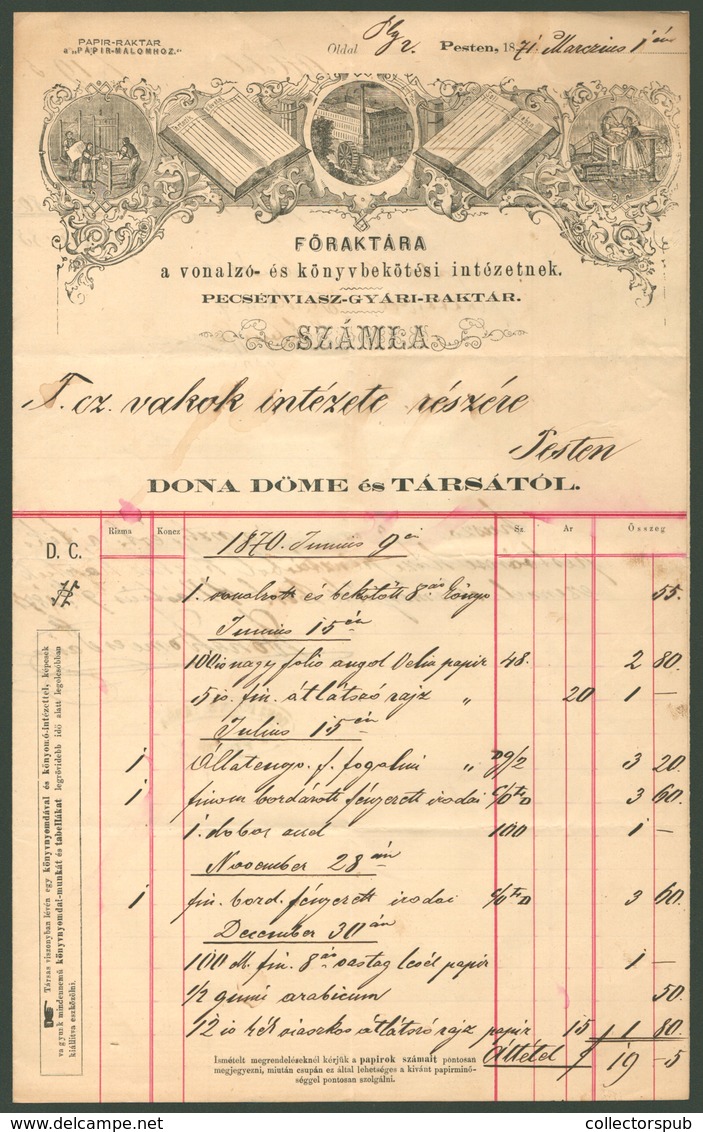 PAPIR-RAKTAR
a „PAPIR-MALOMHOZ."
Oldal
Pesten, 1871 Marczius 1 én
FŐRAKTÁRA
a vonalzó- és könyvbekötési intézetnek.
PECSÉTVIASZ-GYÁRI-RAKTÁR.
SZÁMLA
T. cz. vakok intézete részére
Pesten
DONA DÖME és TÁRSÁTÓL.
D. C. Rizma Koncz Sz. Ár Összeg
1870. Junius 9 én
1. vonalzott és bekötött könyv 55.
Junius 15 én
100 iv nagy folio angol Velin papir 48. 2 80.
5 iv. fin. átlátszó rajz „ 20 1 —
Julius 15 én
1 f. fogalmi „ 9/2 3 20.
1 finom bordázott fényezett irodai 3 60.
1. doboz 100 1 —
November 28 án
1 fin. bord. fényezett irodai 3 60
December 30 án
100 fin. 8 vastag levél papir 1 —
1/2 gumi arabicum 50.
12 iv kék viaszkos átlátszó rajz papir 15 1 80.
Áttétel f 19 — 5
Ismételt megrendelésekél kérjük a papirok számait pontosan
megjegyezni, miután csupán ez által lehetséges a kivánt papirminő-
séggel pontosan szolgálni.
Társas viszonyban lévén egy könyvnyomdával és könyomó-intézettel, képesek
vagyunk mindennemű könyvnyomdai-munkát és tabellákat legrövidebb idő alatt legolcsóbban
kiállitva eszközölni.
collectorspub